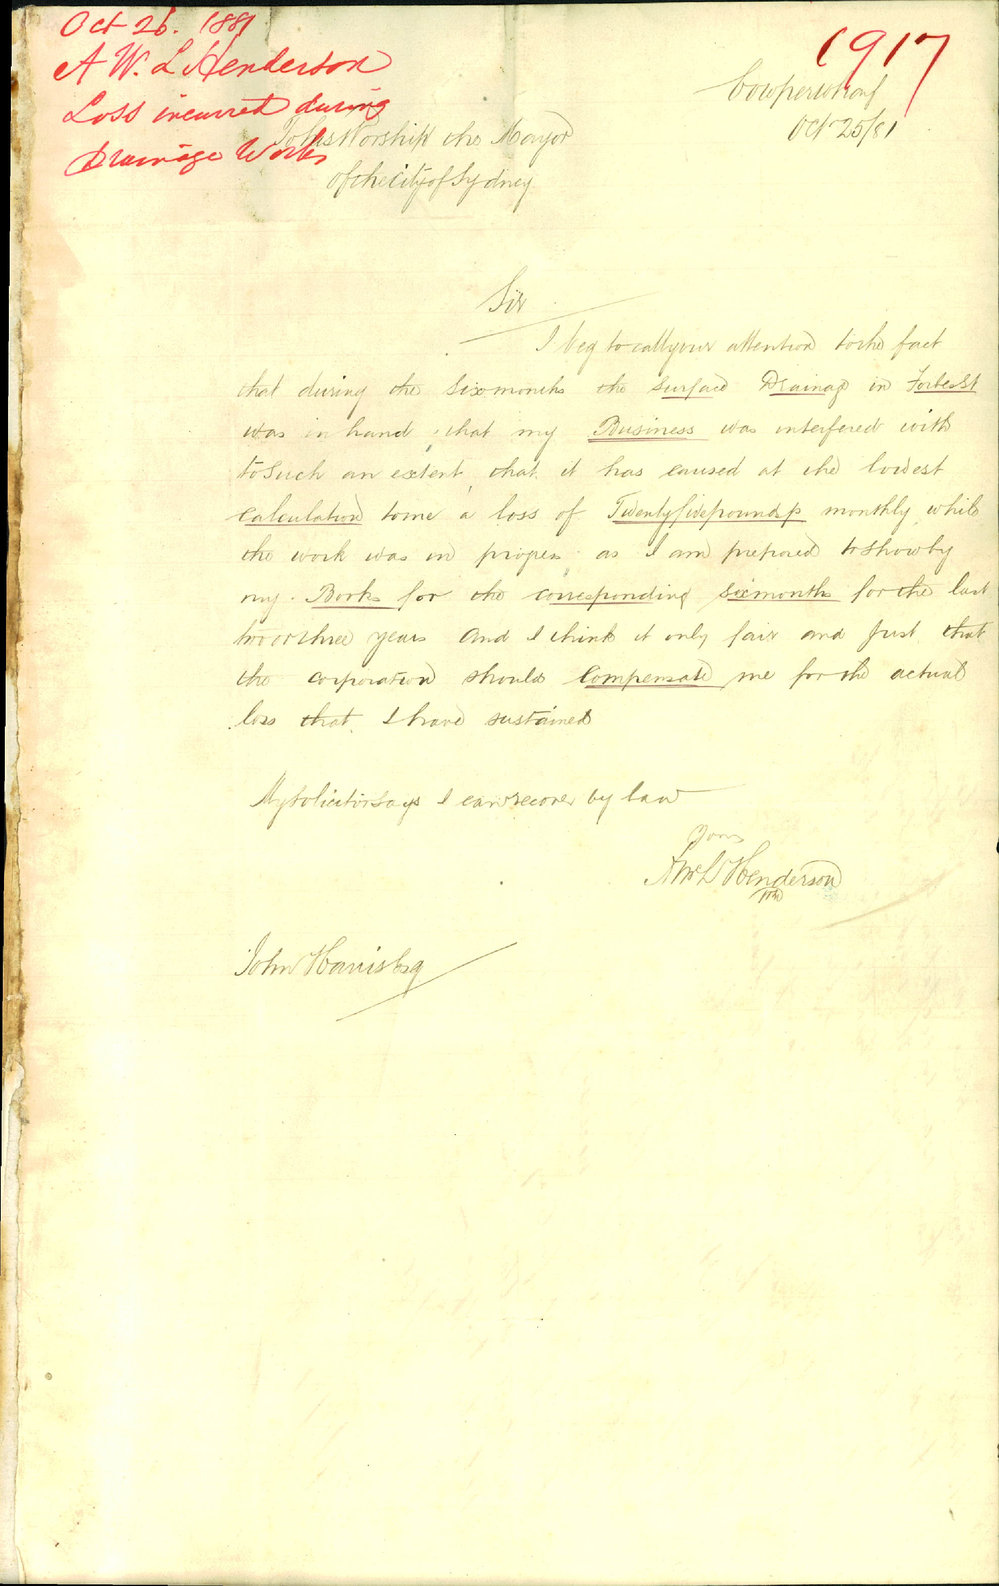 Oct 26. 1881
A W. L Henderson
Loss incurred during
Drainage Works
1917
Cowper wharf
Oct 25/81
To His Worship the Mayor
of the city of Sydney
Sir
I beg to call your attention to the fact
that during the six months the surface Drainage in Forbes St
was in hand, that my Business was interfered with
to such an extent, that it has caused at the lowest
calculation to me a loss of Twenty five pounds monthly while
the work was in progress, as I am prepared to show by
my Books for the corresponding six months for the last
two or three years and I think it only fair and just that
the corporation should compensate me for the actual
loss that I have sustained
My solicitor says I can recover by law
Yours
Henderson
John Harris Esq